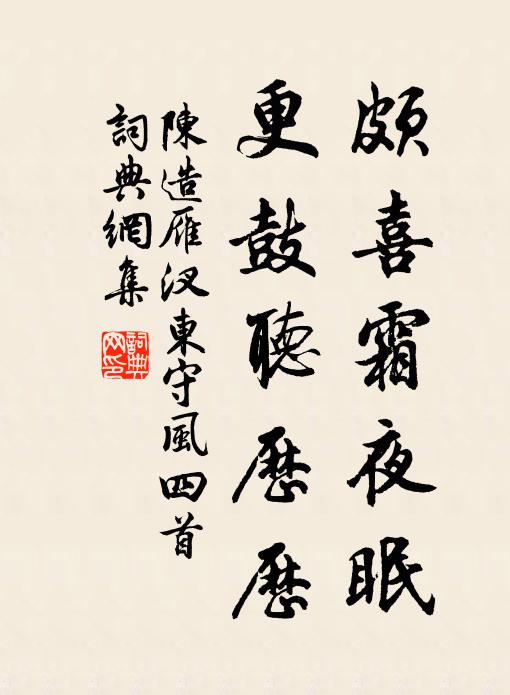 頗喜霜夜眠
更鼓聽歷歷
陳造雁汊東守風四首
詞典網集
詞典网印